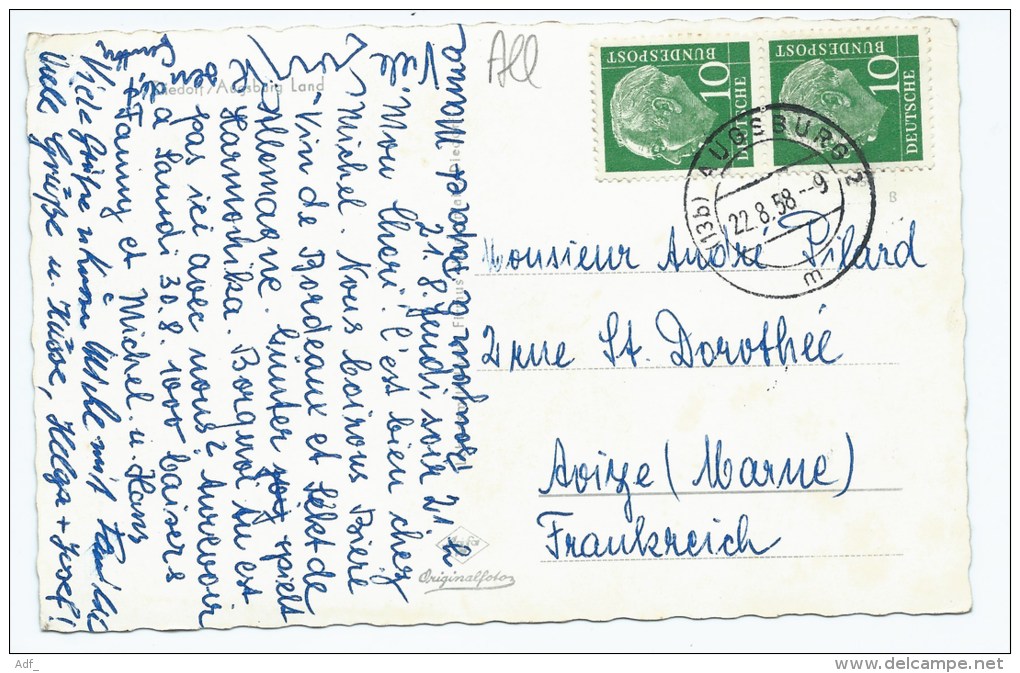 All
10
DEUTSCHE
BUNDESPOST
10
DEUTSCHE
BUNDESPOST
(13b) AUGSBURG 2
22.8.58.--9
m
B
Diedorf/Augsburg Land
Papa et Mama
21.8. Jeudi, soir 21 h
Mon Cheri! C'est bien chez
Michel. Nous boirons Bière
Vin de Bordeaux et Sekt de
Allemagne. Günter spielt
Harmonika. Borgnol tu est
pas ici avec nous? Aurevoir
a Lundi 30.8. 1000 baisers
Fanny et Michel u. Hans
Viele Grüße mit Familie
Viele Grüße u. Küsse, Helga + Josef!
Monsieur André Pilard
2 rue St. Dorothée
Avize (Marne)
Frankreich
Originalfoto
Adf_
www.delcampe.net